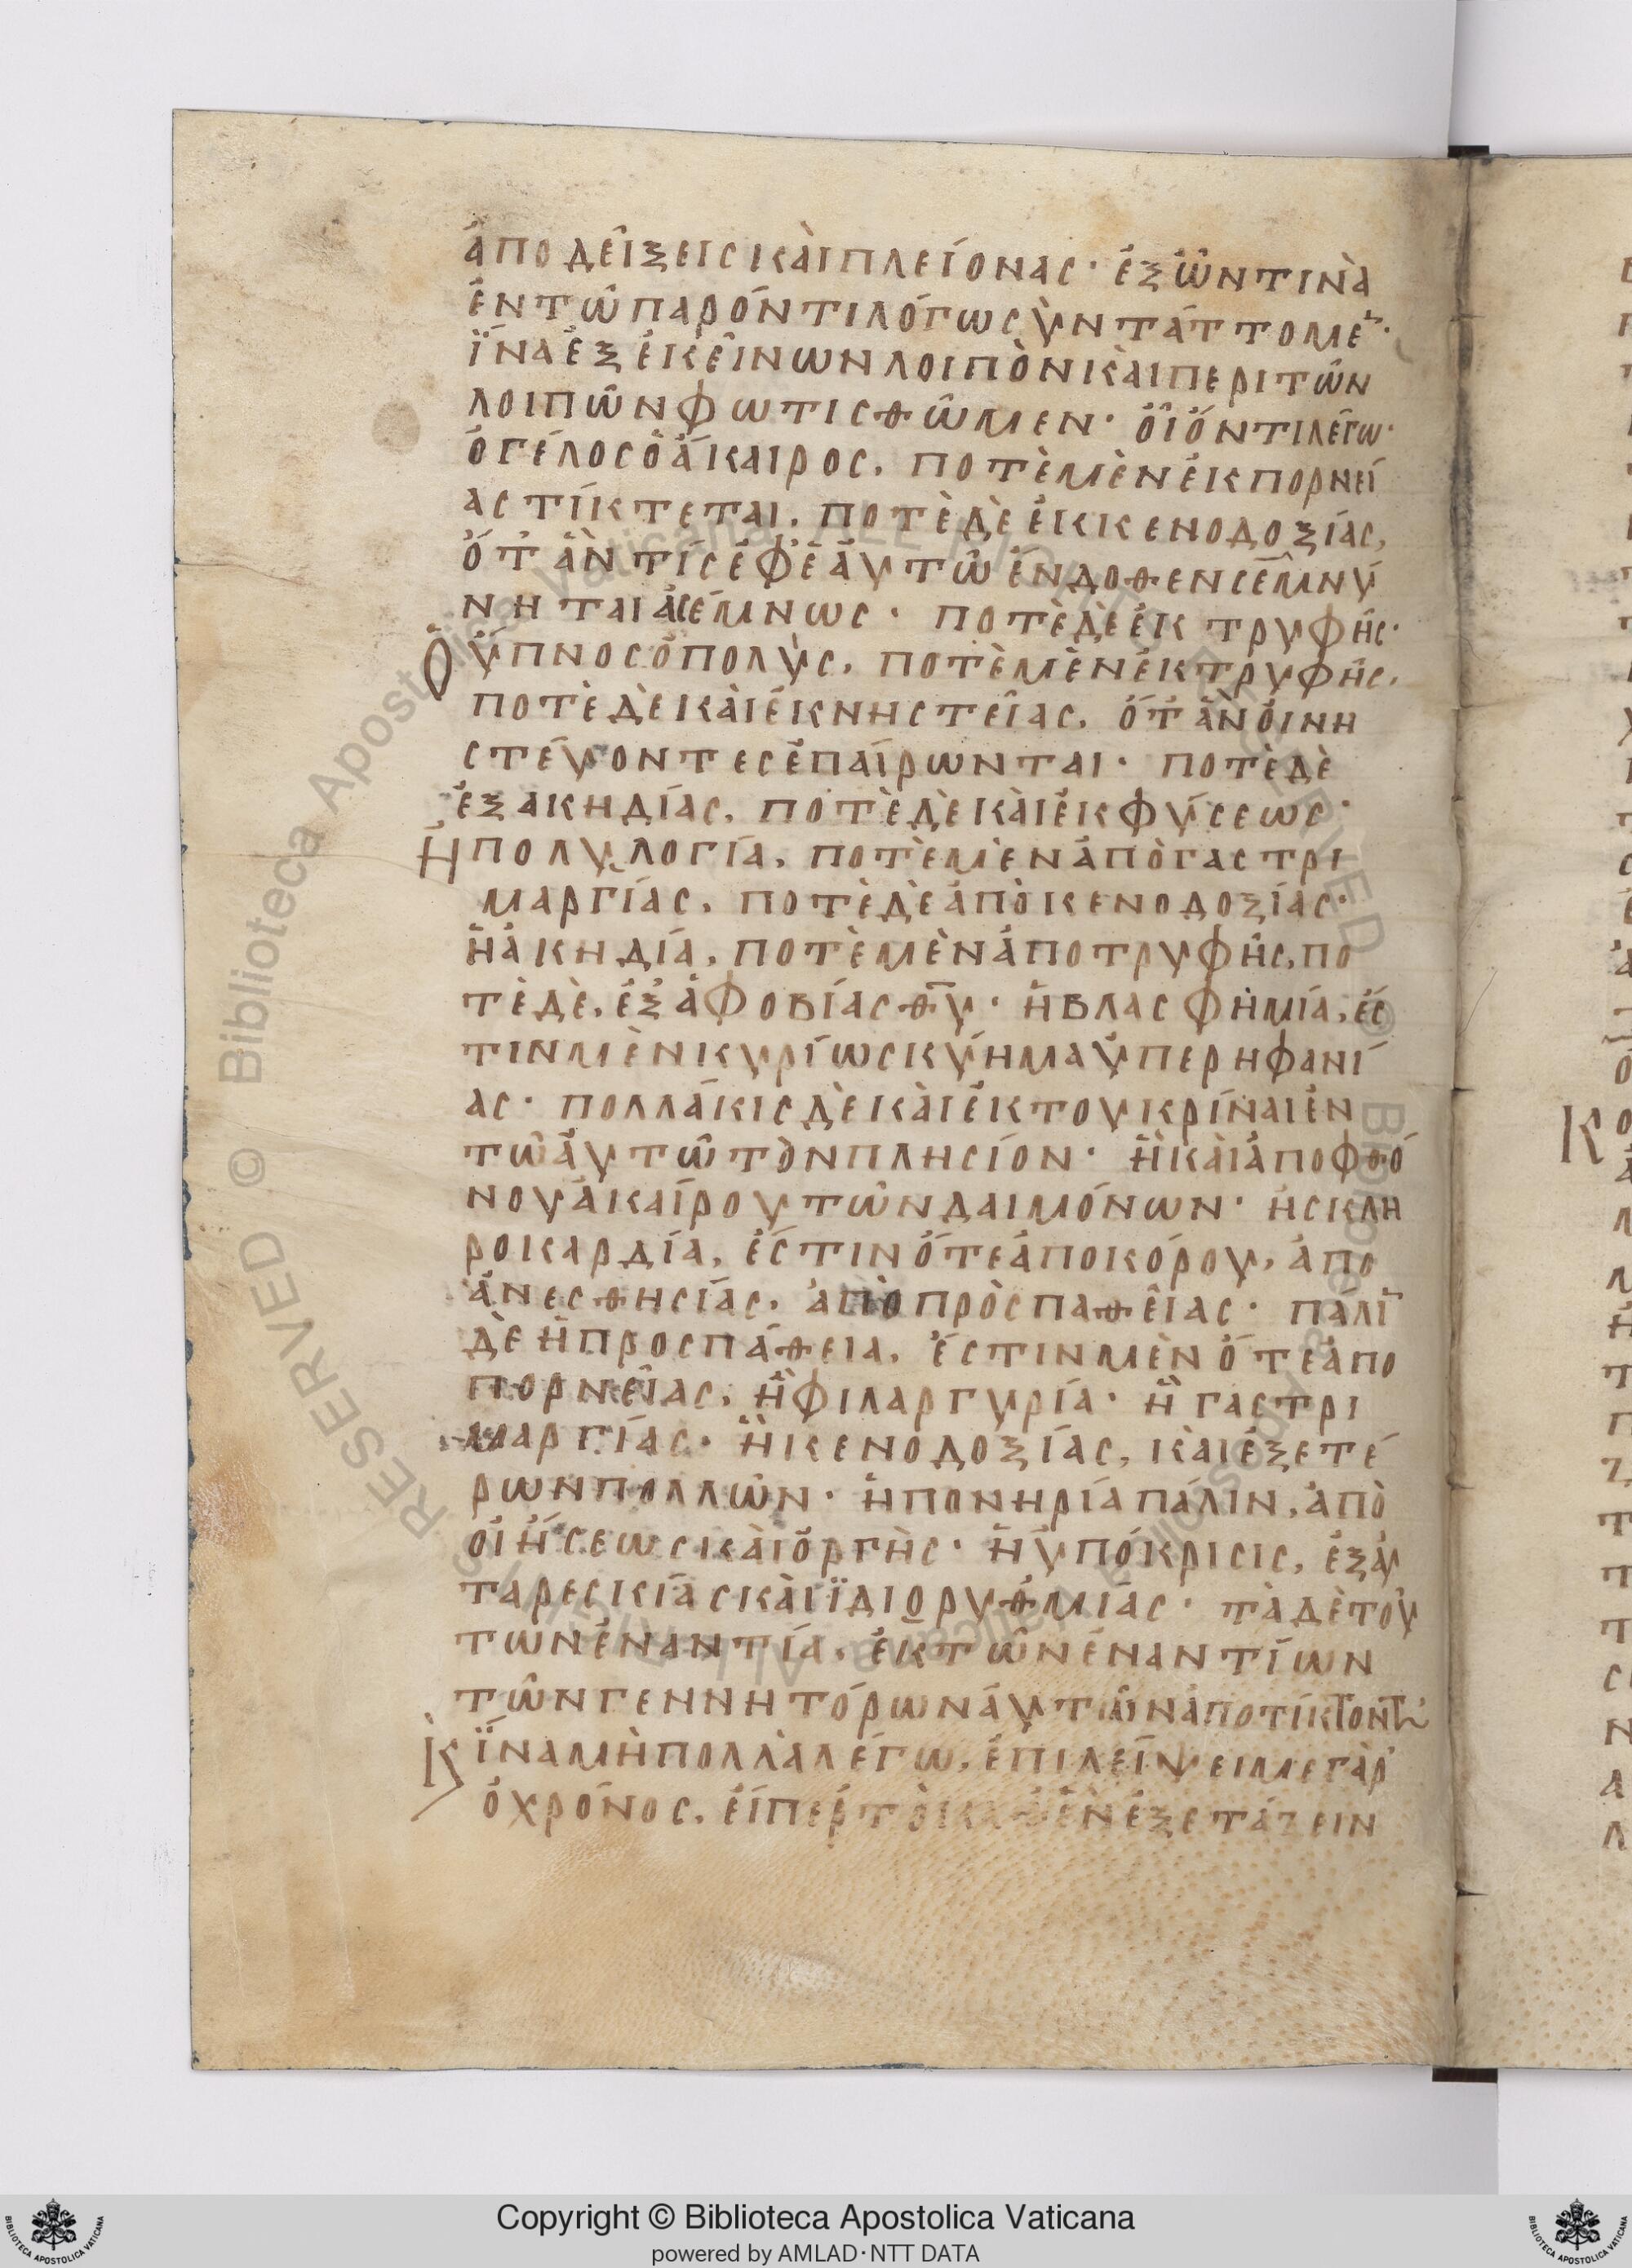 ἀποδεῖξεις καὶ πλείονας· ἐξ ὧν τινὰ
ἐν τῶ παρόντι λόγω συντάττομεν·
ἵνα ἐξ ἐκείνων λοιπὸν καὶ περι τῶν
λοιπῶν φωτισθῶμεν· οἷόν τι λέγω·
ὁ γέλος ὁ ἄκαιρος, ποτὲ μὲν ἐκ πορνεί
ας τίκτεται, ποτὲ δὲ ἐκ κενοδοξίας,
ὅτ ἄν τίς ἐφ ἑαυτῶ ἔνδοθεν σεμνύ
νηται ἀσέμνως· ποτὲ δὲ ἐκ τρυφῆς·
Ὁ ὕπνος ὁ πολὺς, ποτὲ μὲν ἐκ τρυφῆς,
ποτὲ δὲ καὶ ἐκ νηστείας, ὅτ ἂν ὁι νη
στέυοντες ἐπαίρωνται· ποτὲ δὲ
ἐξ ακηδίας, ποτὲ δὲ καὶ ἐκ φύσεως·
Ἡ πολυλογία, ποτὲ μὲν ἀπὸ γαστρι
μαργίας, ποτὲ δὲ ἀπὸ κενοδοξίας·
ἡ ἀκηδία, ποτὲ μὲν ἀπο τρυφῆς, πο
τὲ δὲ, ἐξ ἀφοβίας θυ· ἡ βλασφημία, ἔσ
τιν μὲν κυρίως κύημα ὑπερηφανί
ας· πολλάκις δὲ καὶ ἐκ του κρίναι ἐν
τῶ ἀυτῶ τὸν πλησίον· ἢ καὶ ἀπο φθό
νου ἀκαίρου τῶν δαιμόνων· ἡ σκλη
ροκαρδία, ἔστιν ὅτε ἀπο κόρου, ἀπο
ἀνεσθησίας, ἀπὸ προσπαθείας· πάλιν
δὲ ἡ προσπάθεια, ἔστιν μὲν ὅτε ἀπο
πορνείας, ἢ φιλαργυρία· ἢ γαστρι
μαργίας· ἢ κενοδοξίας, καὶ ἐξ ετέ
ρων πολλῶν· ἡ πονηρία πάλιν, ἀπὸ
οἰήσεως καὶ ὀργῆς· ἡ ὑπόκρισις, ἐξ αυ
ταρεσκίας καὶ ἰδιορυθμίας· τὰ δὲ τού
των ἐναντία, ἐκ τῶν ἐναντίων
τῶν γεννητόρων ἀυτῶν ἀποτίκτονται
Κ ἵνα μὴ πολλὰ λέγω, ἐπιλείψει με γὰρ
ὁ χρόνος, εἴπερ τὸ καθ ἓν ἐξετάζειν
Copyright © Biblioteca Apostolica Vaticana
powered by AMLAD·NTT DATA